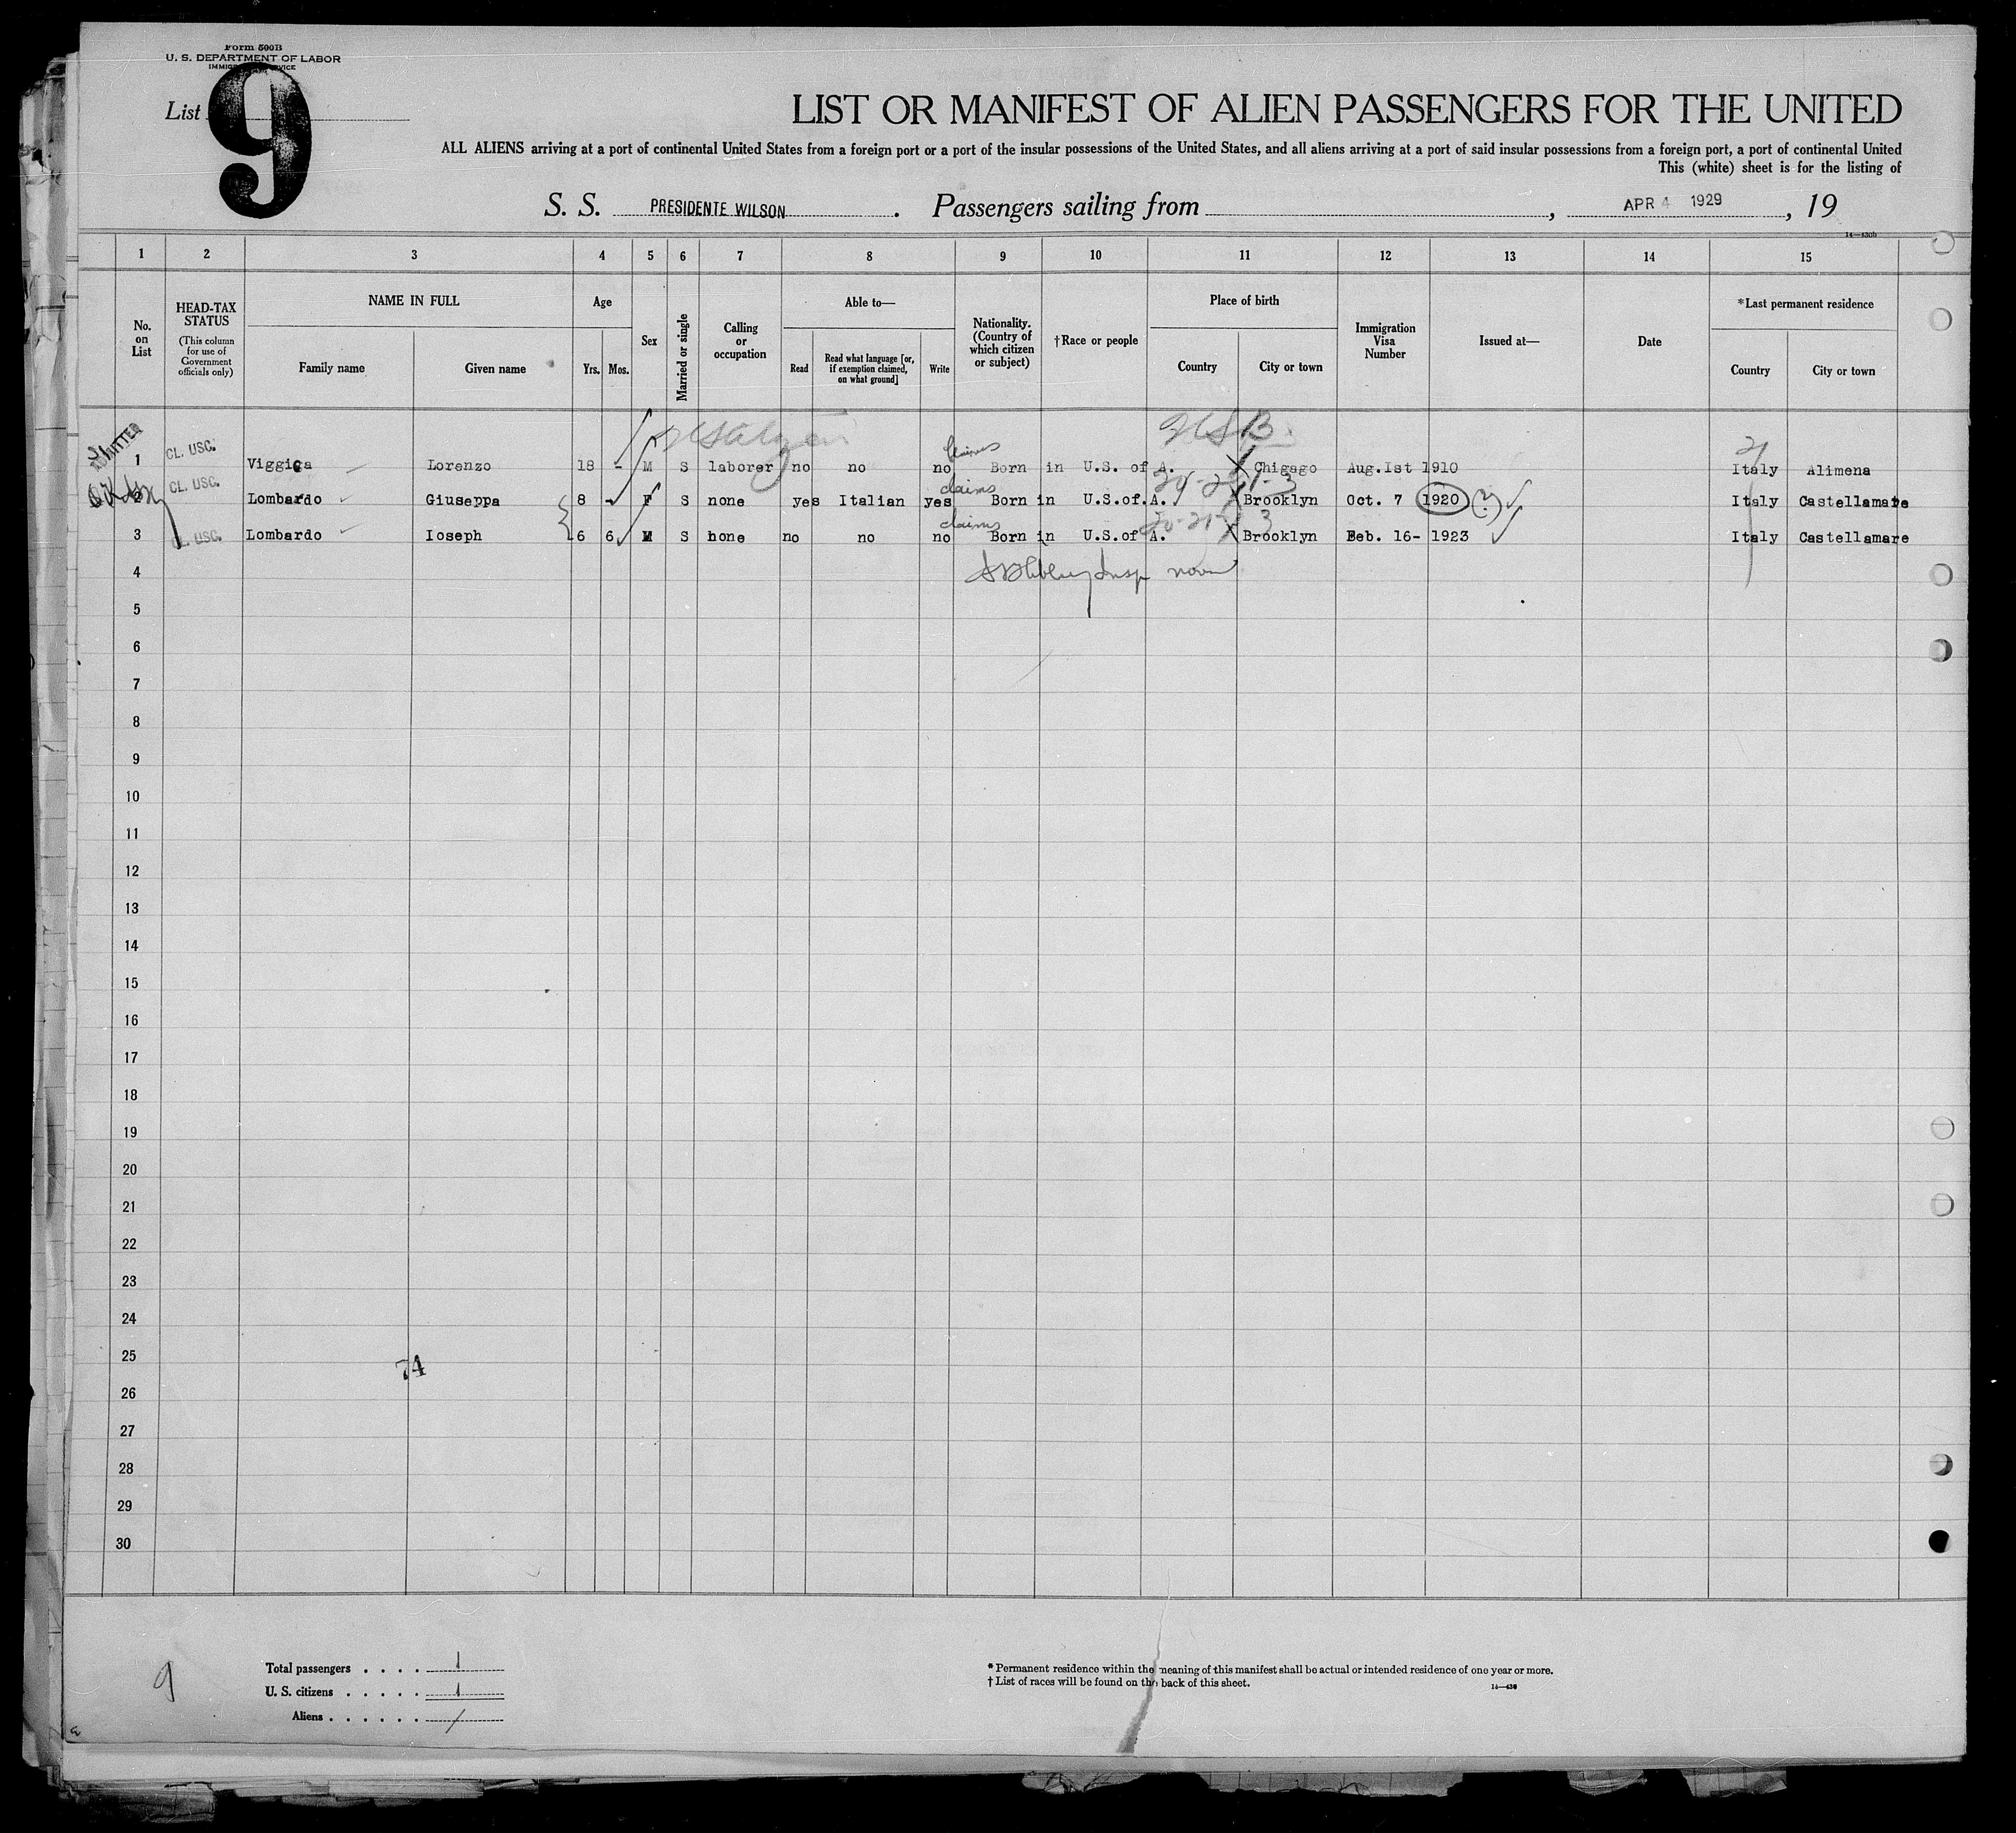 Form 500B
U. S. DEPARTMENT OF LABOR
List 9
LIST OR MANIFEST OF ALIEN PASSENGERS FOR THE UNITED
ALL ALIENS arriving at a port of continental United States from a foreign port or a port of the insular possessions of the United States, and all aliens arriving at a port of said insular possessions from a foreign port, a port of continental United
This (white) sheet is for the listing of
S. S. PRESIDENTE WILSON. Passengers sailing from , APR 4 1929, 19
14—430b
1 2 3 4 5 6 7 8 9 10 11 12 13 14 15
No. on List
HEAD-TAX STATUS
(This column for use of Government officials only)
NAME IN FULL
Family name Given name
Age
Yrs. Mos.
Sex
Married or single
Calling or occupation
Able to—
Read
Read what language [or, if exemption claimed, on what ground]
Write
Nationality. (Country of which citizen or subject)
†Race or people
Place of birth
Country City or town
Immigration Visa Number
Issued at—
Date
*Last permanent residence
Country City or town
USB
1 CL. USC. Viggica Lorenzo 18 - M S laborer no no no claims Born in U.S. of A. Chigago Aug.Ist 1910 Italy Alimena
2 CL. USC. Lombardo Giuseppa 8 - F S none yes Italian yes claims Born in U.S.of.A. Brooklyn Oct. 7 1920 (?) Italy Castellamare
3 CL. USC. Lombardo Ioseph 6 6 M S none no no no claims Born in U.S.of A. Brooklyn Feb. 16- 1923 Italy Castellamare
4
5
6
7
8
9
10
11
12
13
14
15
16
17
18
19
20
21
22
23
24
25
74
26
27
28
29
30
9
Total passengers . . . . 1
U. S. citizens . . . . . 1
Aliens . . . . . . /
* Permanent residence within the meaning of this manifest shall be actual or intended residence of one year or more.
† List of races will be found on the back of this sheet.
14—430